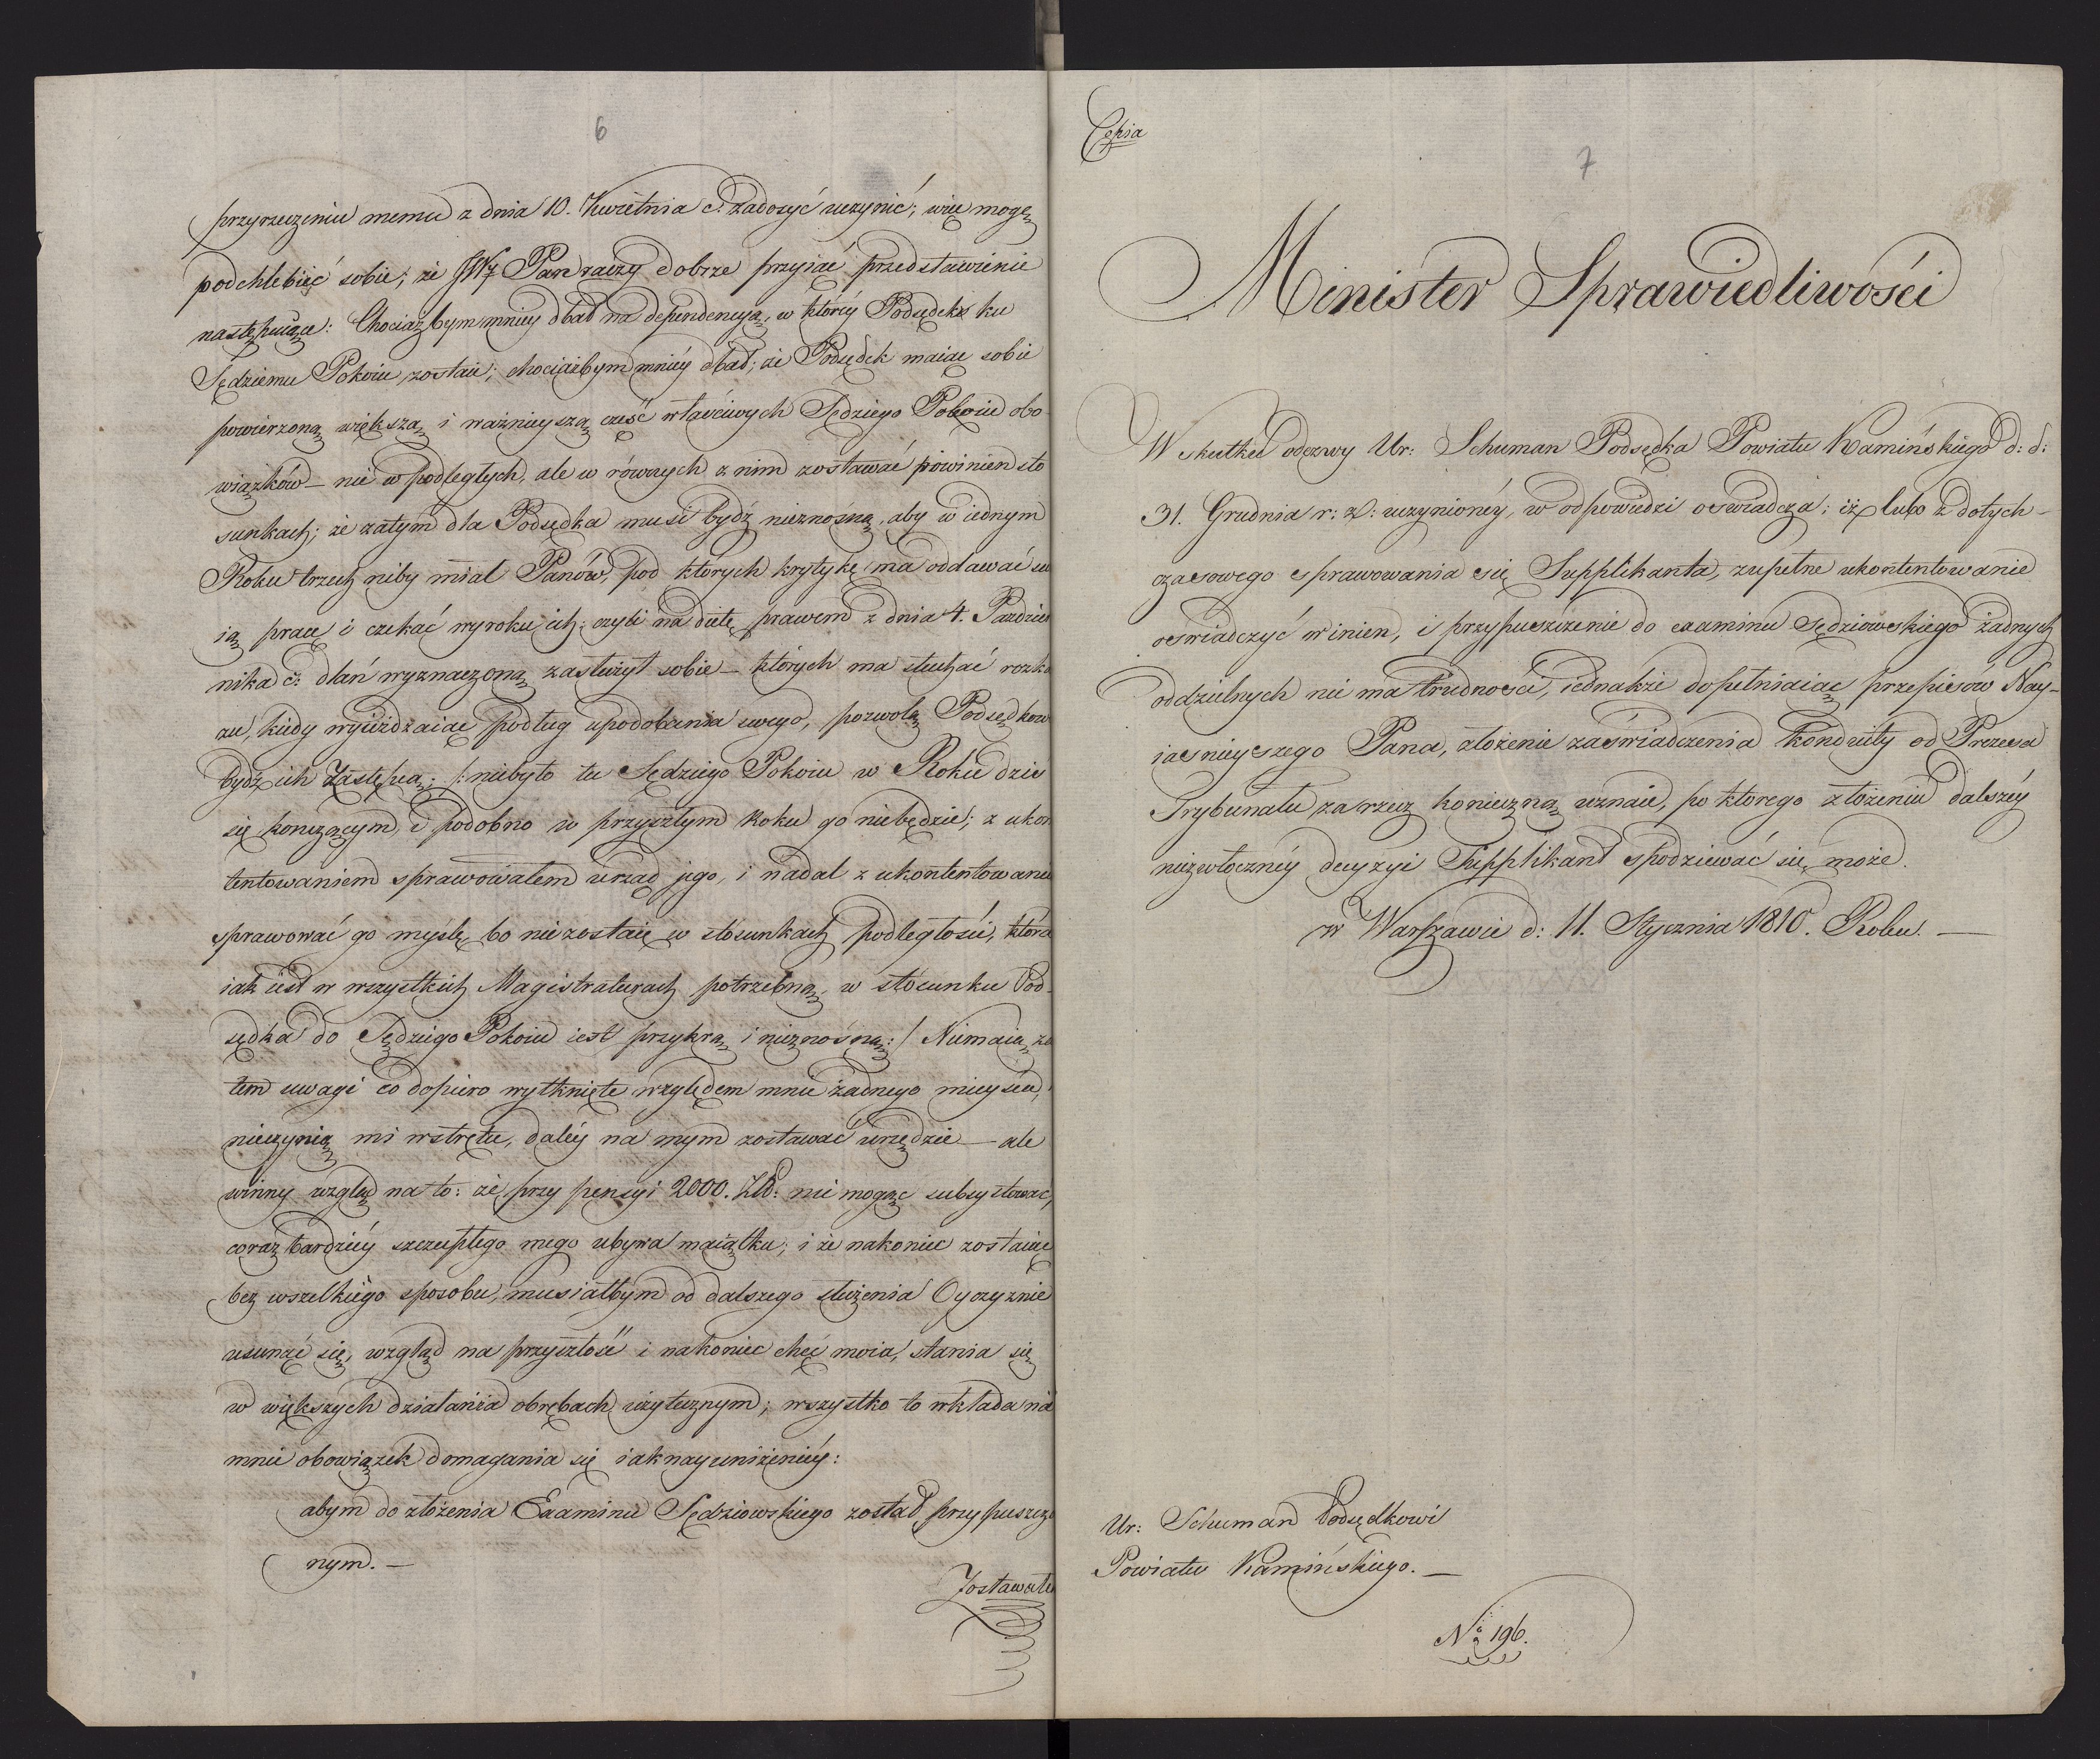 6
przyrzeczeniu memu z dnia 10. Kwietnia c: zadosyć uczynić; więc mogę
podchlebić sobie; że JWz Pan raczy dobrze przyiąć przedstawienie
następuiące: Chociażbym mniey dbał na dependencyą, w któréy Podsędek ku
Sędziemu Pokoiu zostaie; chociażbym mniéy dbał; że Podsędek maiąc sobie
powierzoną większą i ważnieyszą cześć właściwych Sędziego Pokoiu obo
wiązków – nie w podległych, ale w równych z nim zostawać powinien sto
sunkach; że zatym dla Podsędka musi bydź nieznośną, aby w iednym
Roku trzech niby miał Panów, pod których krytykę ma oddawać swo
ią pracę i czekać wyroku ich: czyli na dietę prawem z dnia 4. Paździer
nika c: dlań wyznaczoną zasłużył sobie – których ma słuchać rozka
zu, kiedy wyieżdżaiąc podług upodobania swego, pozwolą Podsędkow
bydź ich Zastępcą; /: niebyło tu Sędziego Pokoiu w Roku dziś
się konczącym, i podobno w przyszłym Roku go niebędzie; z ukon
tentowaniem sprawowałem urząd jego, i nadal z ukontentowanie
sprawować go myślę, bo nie zostaię w stosunkach podległości, która
iak iest w wszystkich Magistraturach potrzebną, w stosunku Pod-
sędka do Sędziego Pokoiu iest przykrą i nieznośną :/ Niemaią za
tem uwagi co dopiero wytknięte względem mnie żadnego mieysca,
nieczynią mi wstrętu, daléy na mym zostawać urzędzie – ale
winny wzgląd na to: że przy pensyi 2000. Zł: nie mogąc subsystować,
coraz bardziéy szczupłego mego ubywa maiątku; i że nakoniec zostaiąc
bez wszelkiégo sposobu, musiałbym od dalszego służenia Oyczyznie
usunąć się, wzgląd na przyszłość i nakoniec chęć moia, stania się
w większych działania obrębach użytecznym; wszystko to wkłada na
mnie obowiązek domagania się iaknayuniżeniéy:
abym do złożenia Examinu Sędziowskiego został przypuszczo
nym. –
Zostawałe
Copia
7
Minister Sprawiedliwości
W skutku odezwy Ur: Schuman Podsędka Powiatu Kamińskiego d: d:
31. Grudnia r: z: uczynionéy, w odpowiedzi oswiadcza; iż lubo z dotych-
czasowego sprawowania się Supplikanta, zupełne ukontentowanie
oswiadczyć winien, i przypuszczenie do examinu Sędziowskiego żadnych
oddzielnych nie ma trudności, iednakże dopełniaiąc przepisów Nay-
iasnieyszego Pana, złożenie zaświadczenia Konduity od Prezesa
Trybunału za rzecz konieczną uznaie, po ktorego złożeniu dalszéy
niezwłocznéy decyzyi Supplikant spodziewać się może.
w Warszawie d: 11. Stycznia 1810. Roku. –
Ur: Schuman Podsędkowi
Powiatu Kamińskiego. –
No 196.